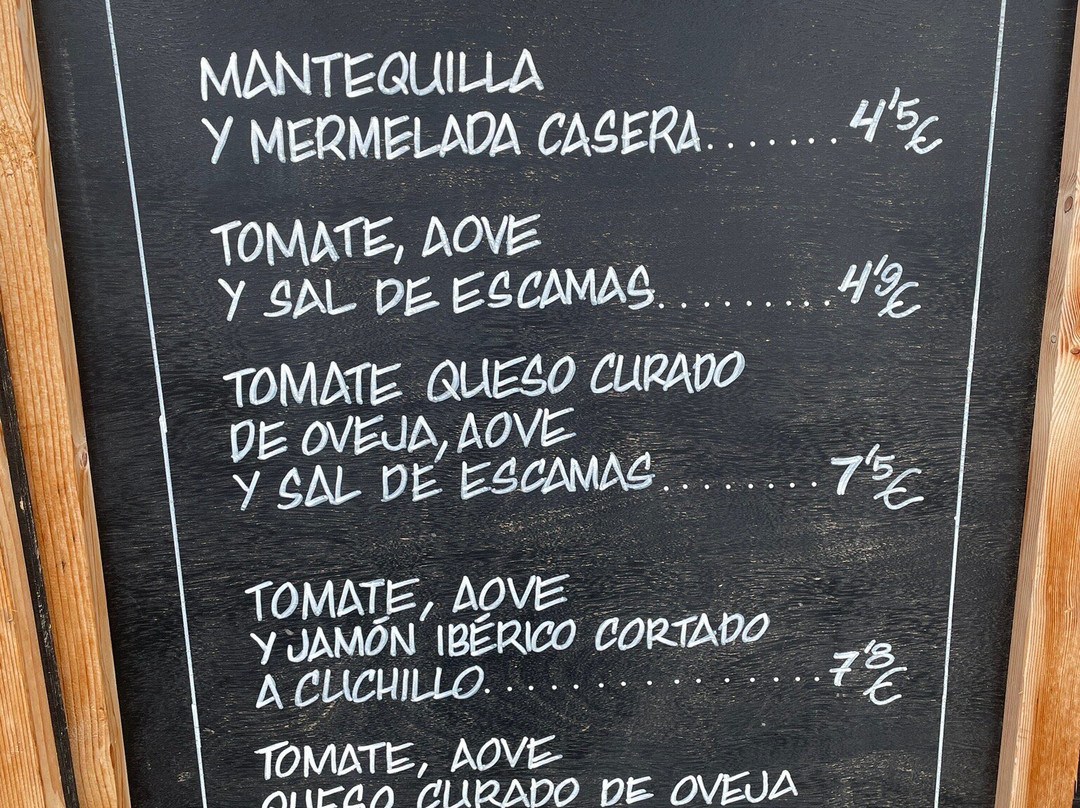 MANTEQUILLA
Y MERMELADA CASERA.......4'5€
TOMATE, AOVE
Y SAL DE ESCAMAS.........4'9€
TOMATE QUESO CURADO
DE OVEJA, AOVE
Y SAL DE ESCAMAS........7'5€
TOMATE, AOVE
Y JAMÓN IBÉRICO CORTADO
A CUCHILLO..................7'8€
TOMATE, AOVE
QUESO CURADO DE OVEJA